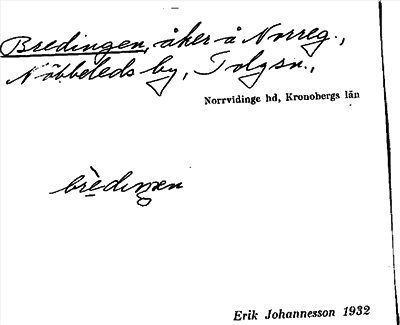 Bredingen, åker å Norreg.,
Nöbbeleds by, Tolgsn.,
Norrvidinge hd, Kronobergs län
brèdıŋen
Erik Johannesson 1932